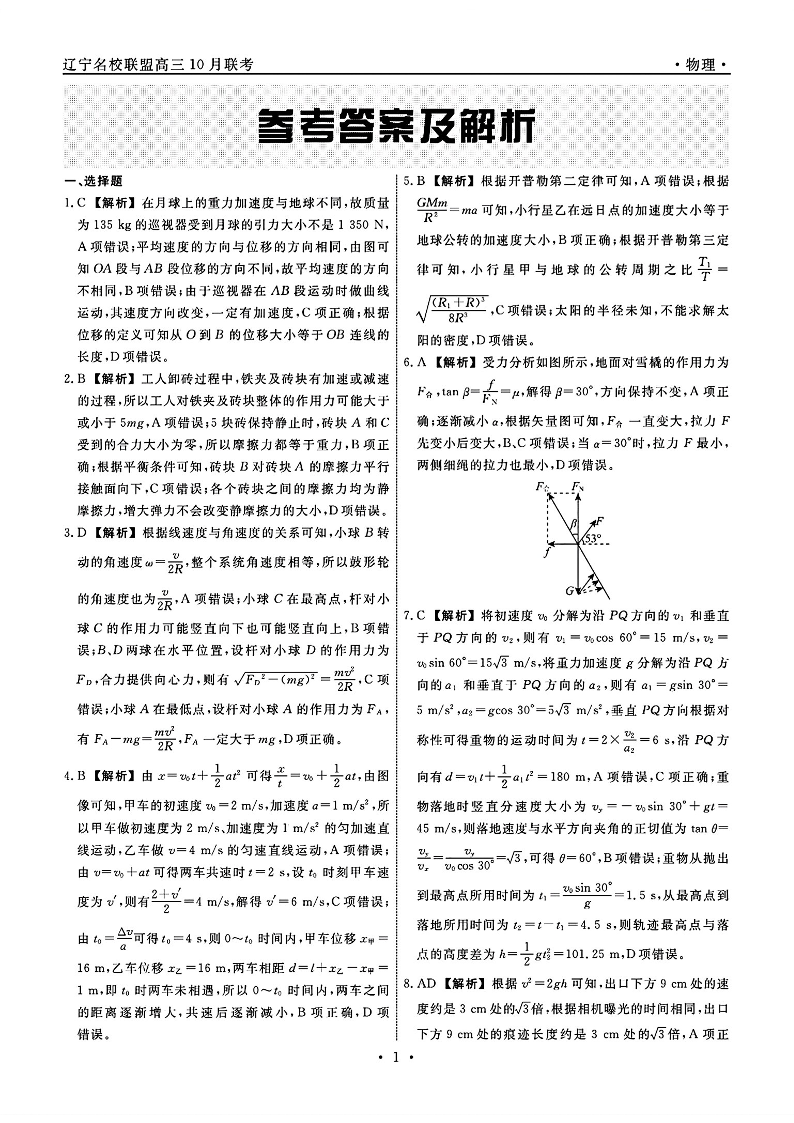 辽宁名校联盟高三10月联考
·物理·
参考答案及解析
一、选择题
1.C 【解析】在月球上的重力加速度与地球不同,故质量
为135 kg的巡视器受到月球的引力大小不是1 350 N,
A项错误;平均速度的方向与位移的方向相同,由图可
知OA段与AB段位移的方向不同,故平均速度的方向
不相同,B项错误;由于巡视器在AB段运动时做曲线
运动,其速度方向改变,一定有加速度,C项正确;根据
位移的定义可知从O到B的位移大小等于OB连线的
长度,D项错误。
2.B 【解析】工人卸砖过程中,铁夹及砖块有加速或减速
的过程,所以工人对铁夹及砖块整体的作用力可能大于
或小于5mg,A项错误;5块砖保持静止时,砖块A和C
受到的合力大小为零,所以摩擦力都等于重力,B项正
确;根据平衡条件可知,砖块B对砖块A的摩擦力平行
接触面向下,C项错误;各个砖块之间的摩擦力均为静
摩擦力,增大弹力不会改变静摩擦力的大小,D项错误。
3.D 【解析】根据线速度与角速度的关系可知,小球B转
动的角速度ω=v/2R,整个系统角速度相等,所以鼓形轮
的角速度也为v/2R,A项错误;小球C在最高点,杆对小
球C的作用力可能竖直向下也可能竖直向上,B项错
误;B、D两球在水平位置,设杆对小球D的作用力为
F_D,合力提供向心力,则有√(F_D²−(mg)²)=mv²/2R,C项
错误;小球A在最低点,设杆对小球A的作用力为F_A,
有F_A−mg=mv²/2R,F_A一定大于mg,D项正确。
4.B 【解析】由x=v₀t+1/2at²可得x/t=v₀+1/2at,由图
像可知,甲车的初速度v₀=2 m/s,加速度a=1 m/s²,所
以甲车做初速度为2 m/s、加速度为1 m/s²的匀加速直
线运动,乙车做v=4 m/s的匀速直线运动,A项错误;
由v=v₀+at可得两车共速时t=2 s,设t₀时刻甲车速
度为v′,则有(2+v′)/2=4 m/s,解得v′=6 m/s,C项错误;
由t₀=Δv/a可得t₀=4 s,则0～t₀时间内,甲车位移x甲=
16 m,乙车位移x乙=16 m,两车相距d=l+x乙−x甲=
1 m,即t₀时两车未相遇,所以0～t₀时间内,两车之间
的距离逐渐增大,共速后逐渐减小,B项正确,D项
错误。
5.B 【解析】根据开普勒第二定律可知,A项错误;根据
GMm/R²=ma可知,小行星乙在远日点的加速度大小等于
地球公转的加速度大小,B项正确;根据开普勒第三定
律可知,小行星甲与地球的公转周期之比T₁/T=
√((R₁+R)³/8R³),C项错误;太阳的半径未知,不能求解太
阳的密度,D项错误。
6.A 【解析】受力分析如图所示,地面对雪橇的作用力为
F合,tan β=f/F_N=μ,解得β=30°,方向保持不变,A项正
确;逐渐减小α,根据矢量图可知,F合一直变大,拉力F
先变小后变大,B、C项错误;当α=30°时,拉力F最小,
两侧细绳的拉力也最小,D项错误。
F合 F_N
β F
f 53°
G
7.C 【解析】将初速度v₀分解为沿PQ方向的v₁和垂直
于PQ方向的v₂,则有v₁=v₀cos 60°=15 m/s,v₂=
v₀sin 60°=15√3 m/s,将重力加速度g分解为沿PQ方
向的a₁和垂直于PQ方向的a₂,则有a₁=gsin 30°=
5 m/s²,a₂=gcos 30°=5√3 m/s²,垂直PQ方向根据对
称性可得重物的运动时间为t=2×v₂/a₂=6 s,沿PQ方
向有d=v₁t+1/2a₁t²=180 m,A项错误,C项正确;重
物落地时竖直分速度大小为v_y=−v₀sin 30°+gt=
45 m/s,则落地速度与水平方向夹角的正切值为tan θ=
v_y/v_x=v_y/(v₀cos 30°)=√3,可得θ=60°,B项错误;重物从抛出
到最高点所用时间为t₁=v₀sin 30°/g=1.5 s,从最高点到
落地所用时间为t₂=t−t₁=4.5 s,则轨迹最高点与落
点的高度差为h=1/2gt₂²=101.25 m,D项错误。
8.AD 【解析】根据v²=2gh可知,出口下方9 cm处的速
度约是3 cm处的√3倍,根据相机曝光的时间相同,出口
下方9 cm处的痕迹长度约是3 cm处的√3倍,A项正
·1·